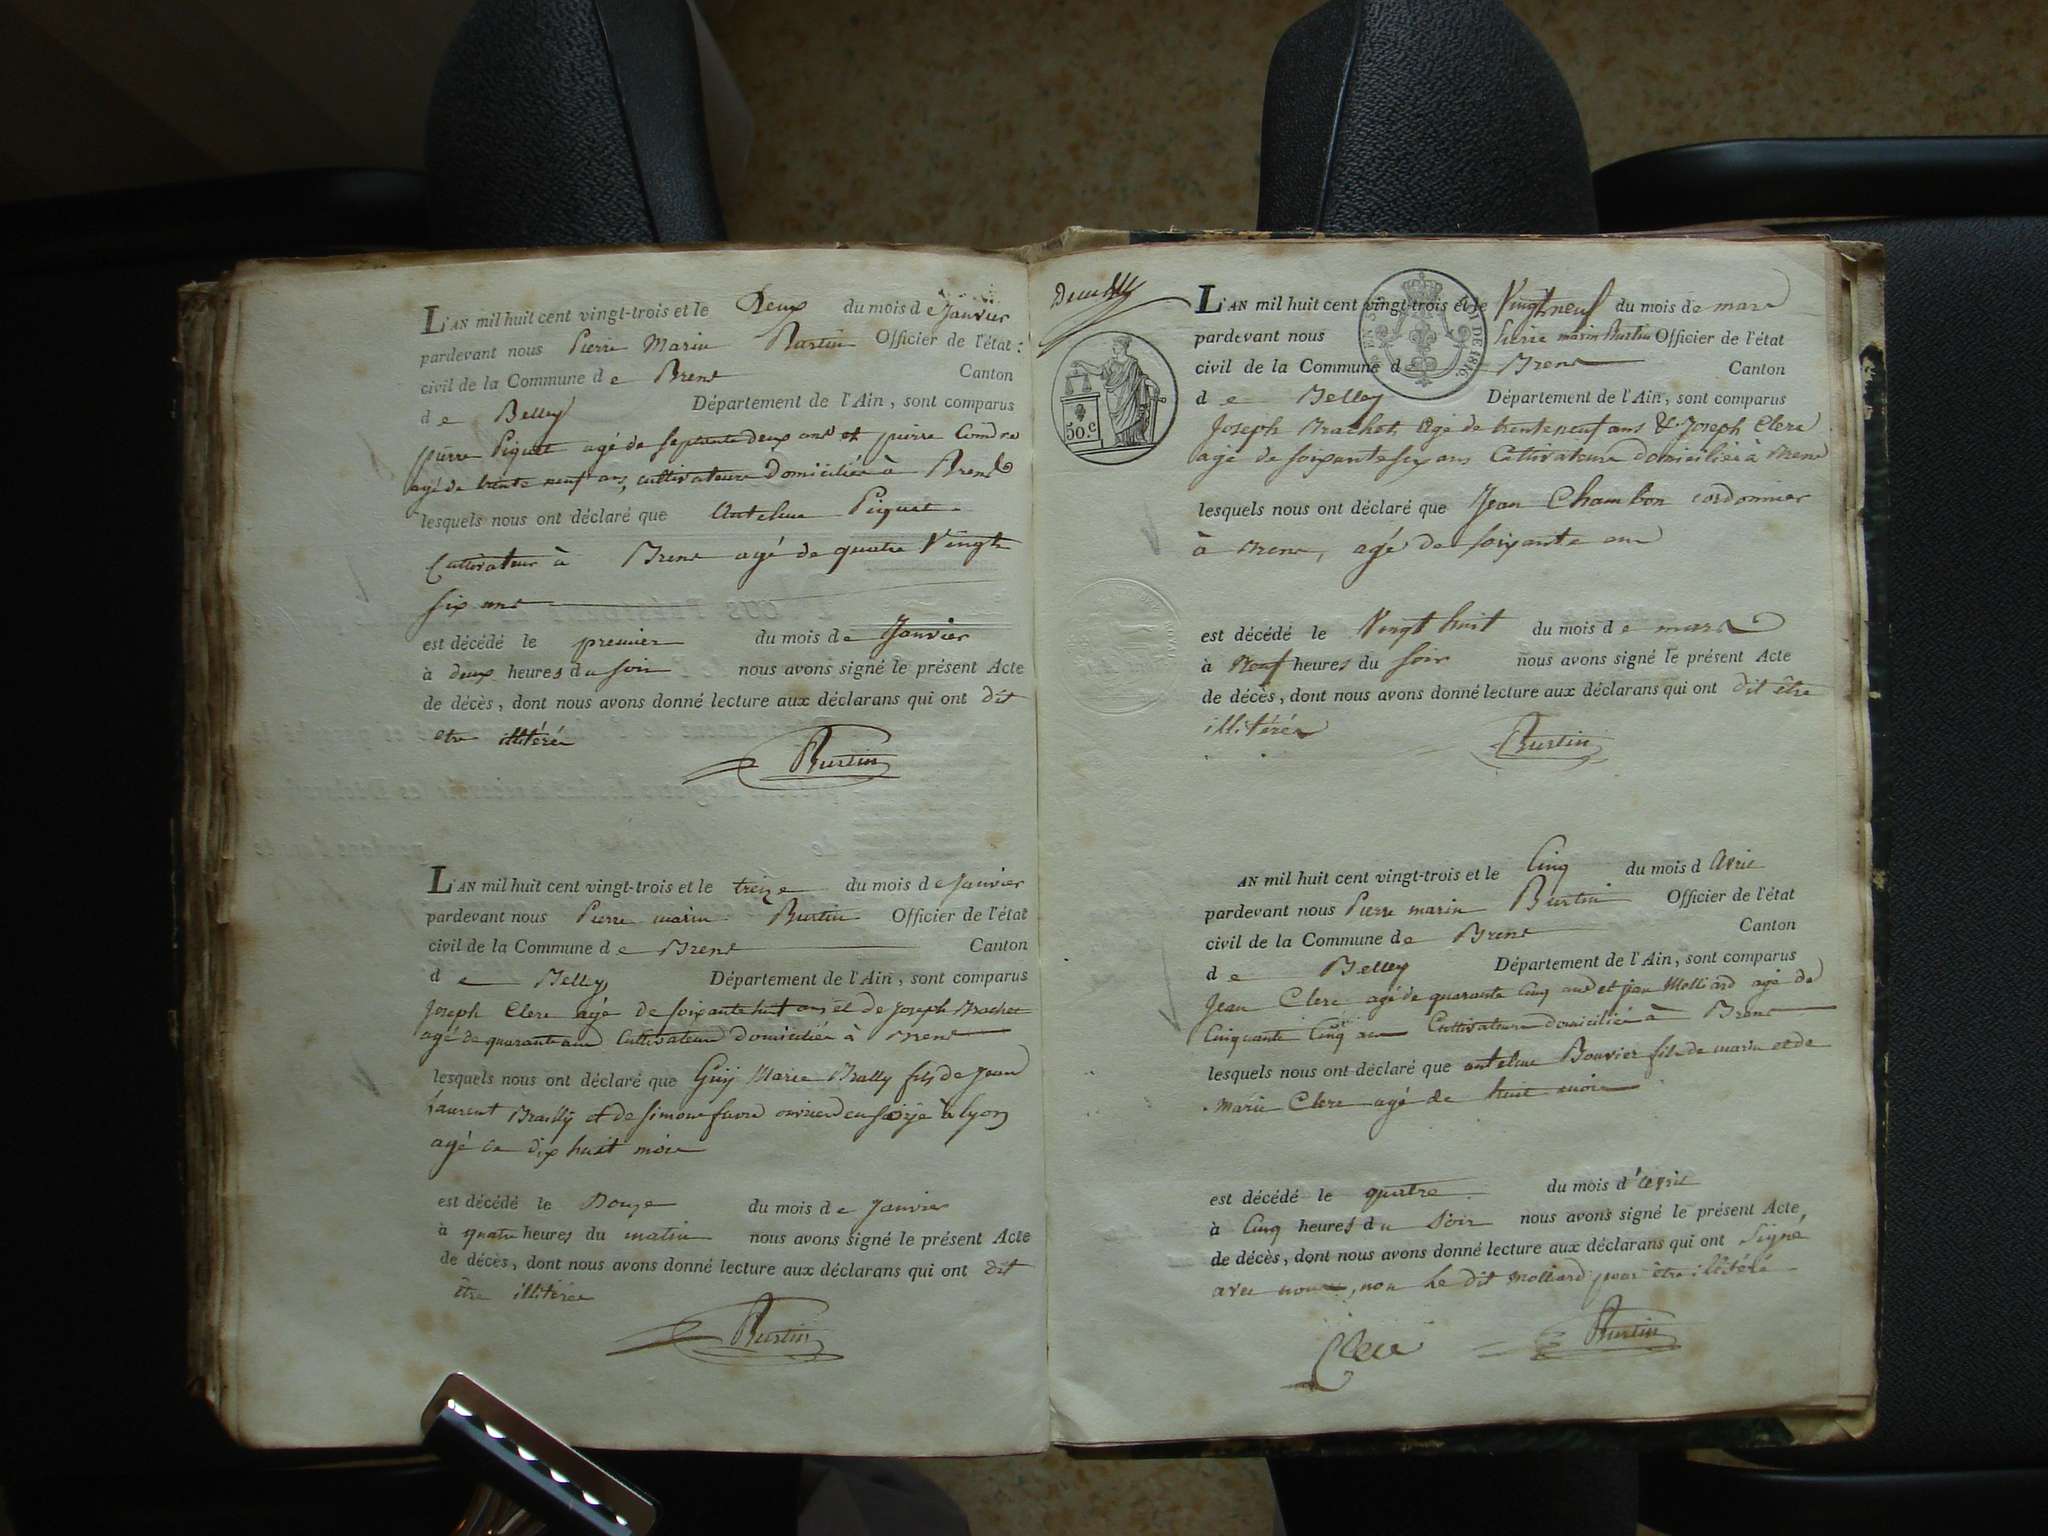 L'AN mil huit cent vingt-trois et le Deux du mois de Janvier
pardevant nous Pierre Marin Burtin Officier de l'état
civil de la Commune de Brens Canton
de Belley Département de l'Ain, sont comparus
pierre Piquet agé de septante deux ans et pierre
agé de trente neuf ans, cultivateurs Domiciliés à Brens
lesquels nous ont déclaré que Antelme Piquet
Cultivateur à Brens agé de quatre Vingt
six ans
est décédé le premier du mois de Janvier
à deux heures du soir nous avons signé le présent Acte
de décès, dont nous avons donné lecture aux déclarans qui ont dit
etre illitérés
Burtin
L'AN mil huit cent vingt-trois et le treize du mois de Janvier
pardevant nous Pierre marin Burtin Officier de l'état
civil de la Commune de Brens Canton
de Belley Département de l'Ain, sont comparus
Joseph Clerc agé de soixante huit ans et de Joseph Brachet
agé de quarante ans Cultivateurs Domiciliés à Brens
lesquels nous ont déclaré que Guy Marie Brally fils de Jean
Laurent Brailly et de Simone favre ouvrier en soije à lyon
agé de dix huit mois
est décédé le Douze du mois de Janvier
à quatre heures du matin nous avons signé le présent Acte
de décès, dont nous avons donné lecture aux déclarans qui ont dit
être illitérés
Burtin
50.c
LOI DE 1816
L'AN mil huit cent vingt-trois et le Vingt neuf du mois de mars
pardevant nous Pierre marin Burtin Officier de l'état
civil de la Commune de Brens Canton
de Belley Département de l'Ain, sont comparus
Joseph Brachet agé de trente neuf ans & Joseph Clerc
agé de soixante six ans Cultivateurs domiciliés à Brens
lesquels nous ont déclaré que Jean Chambon cordonnier
à Brens, agé de soixante ans
est décédé le Vingt huit du mois de mars
à Neuf heures du soir nous avons signé le présent Acte
de décès, dont nous avons donné lecture aux déclarans qui ont dit être
illitérés
Burtin
AN mil huit cent vingt-trois et le Cinq du mois d Avril
pardevant nous Pierre marin Burtin Officier de l'état
civil de la Commune de Brens Canton
de Belley Département de l'Ain, sont comparus
Jean Clerc agé de quarante Cinq ans et jean Molliard agé de
Cinquante Cinq ans Cultivateurs domiciliés à Brens
lesquels nous ont déclaré que antelme Bouvier fils de marin et de
Marie Clerc agé de huit mois
est décédé le quatre du mois d'avril
à Cinq heures du Soir nous avons signé le présent Acte
de décès, dont nous avons donné lecture aux déclarans qui ont Signé
avec nous, non Le dit Molliard pour être illitéré
Clerc
Burtin